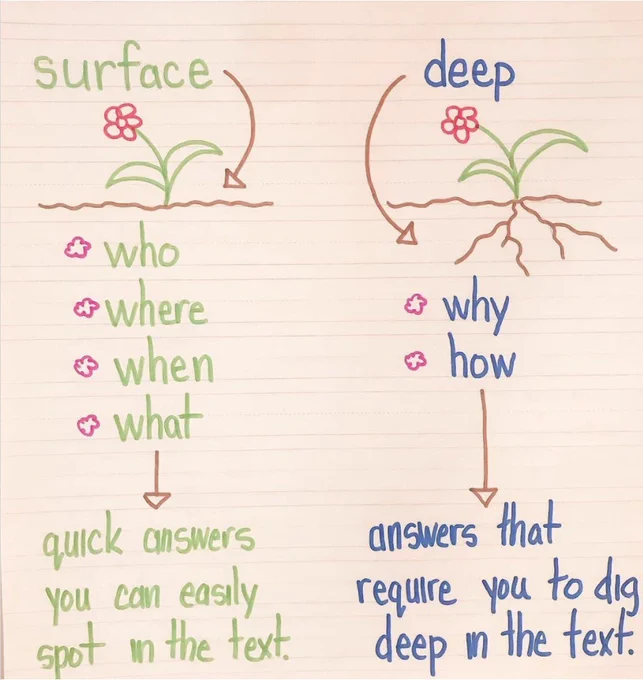 surface
who
where
when
what
quick answers
you can easily
spot in the text.
deep
why
how
answers that
require you to dig
deep in the text.